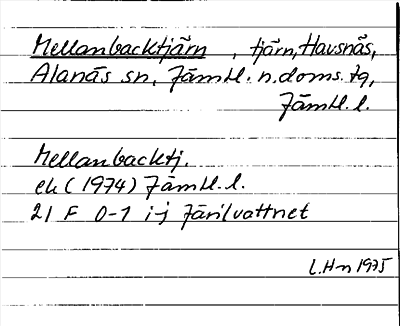 Mellanbacktjärn, tjärn, Havsnäs,
Alanäs sn, Jämtl. n. doms. tg,
Jämtl. l.
Mellanbacktj.
ek (1974) Jämtl. l.
21 F 0-1 i-j Järilvattnet
L.Hm 1975